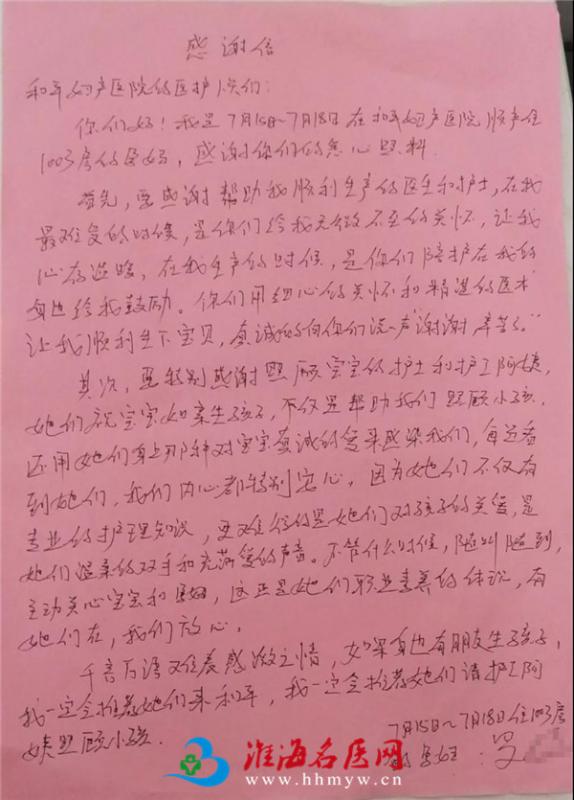 感谢信
和平妇产医院的医护人员们:
你们好!我是7月15日~7月18日在和平妇产医院顺产住
1003房的宝妈,感谢你们的悉心照料.
首先,要感谢帮助我顺利生产的医生和护士,在我
最难受的时候,是你们给我无微不至的关怀,让我
心存温暖,在我生产的时候,是你们陪护在我的
身边给我鼓励。你们用细心的关怀和精湛的医术
让我顺利生下宝贝,真诚的向你们说一声"谢谢 辛苦了。"
其次,要特别感谢照顾宝宝的护士和护工阿姨,
她们视宝宝如亲生孩子,不仅是帮助我们照顾小孩.
还用她们身上那种对宝宝真诚的爱来感染我们,每迈着
到她们,我们内心都特别安心,因为她们不仅有
专业的护理知识,更难得的是她们对孩子的关爱,是
她们温柔的双手和充满爱的声音。不管什么时候,随叫随到,
主动关心宝宝和宝妈,这正是她们职业素养的体现,有
她们在,我们放心.
千言万语难表感激之情,如果身边有朋友生孩子,
我一定会推荐她们来和平,我一定会推荐她们请护工阿
姨照顾小孩.
7月15日~7月18日住1003房
的宝妈:
淮海名医网
www.hhmyw.cn